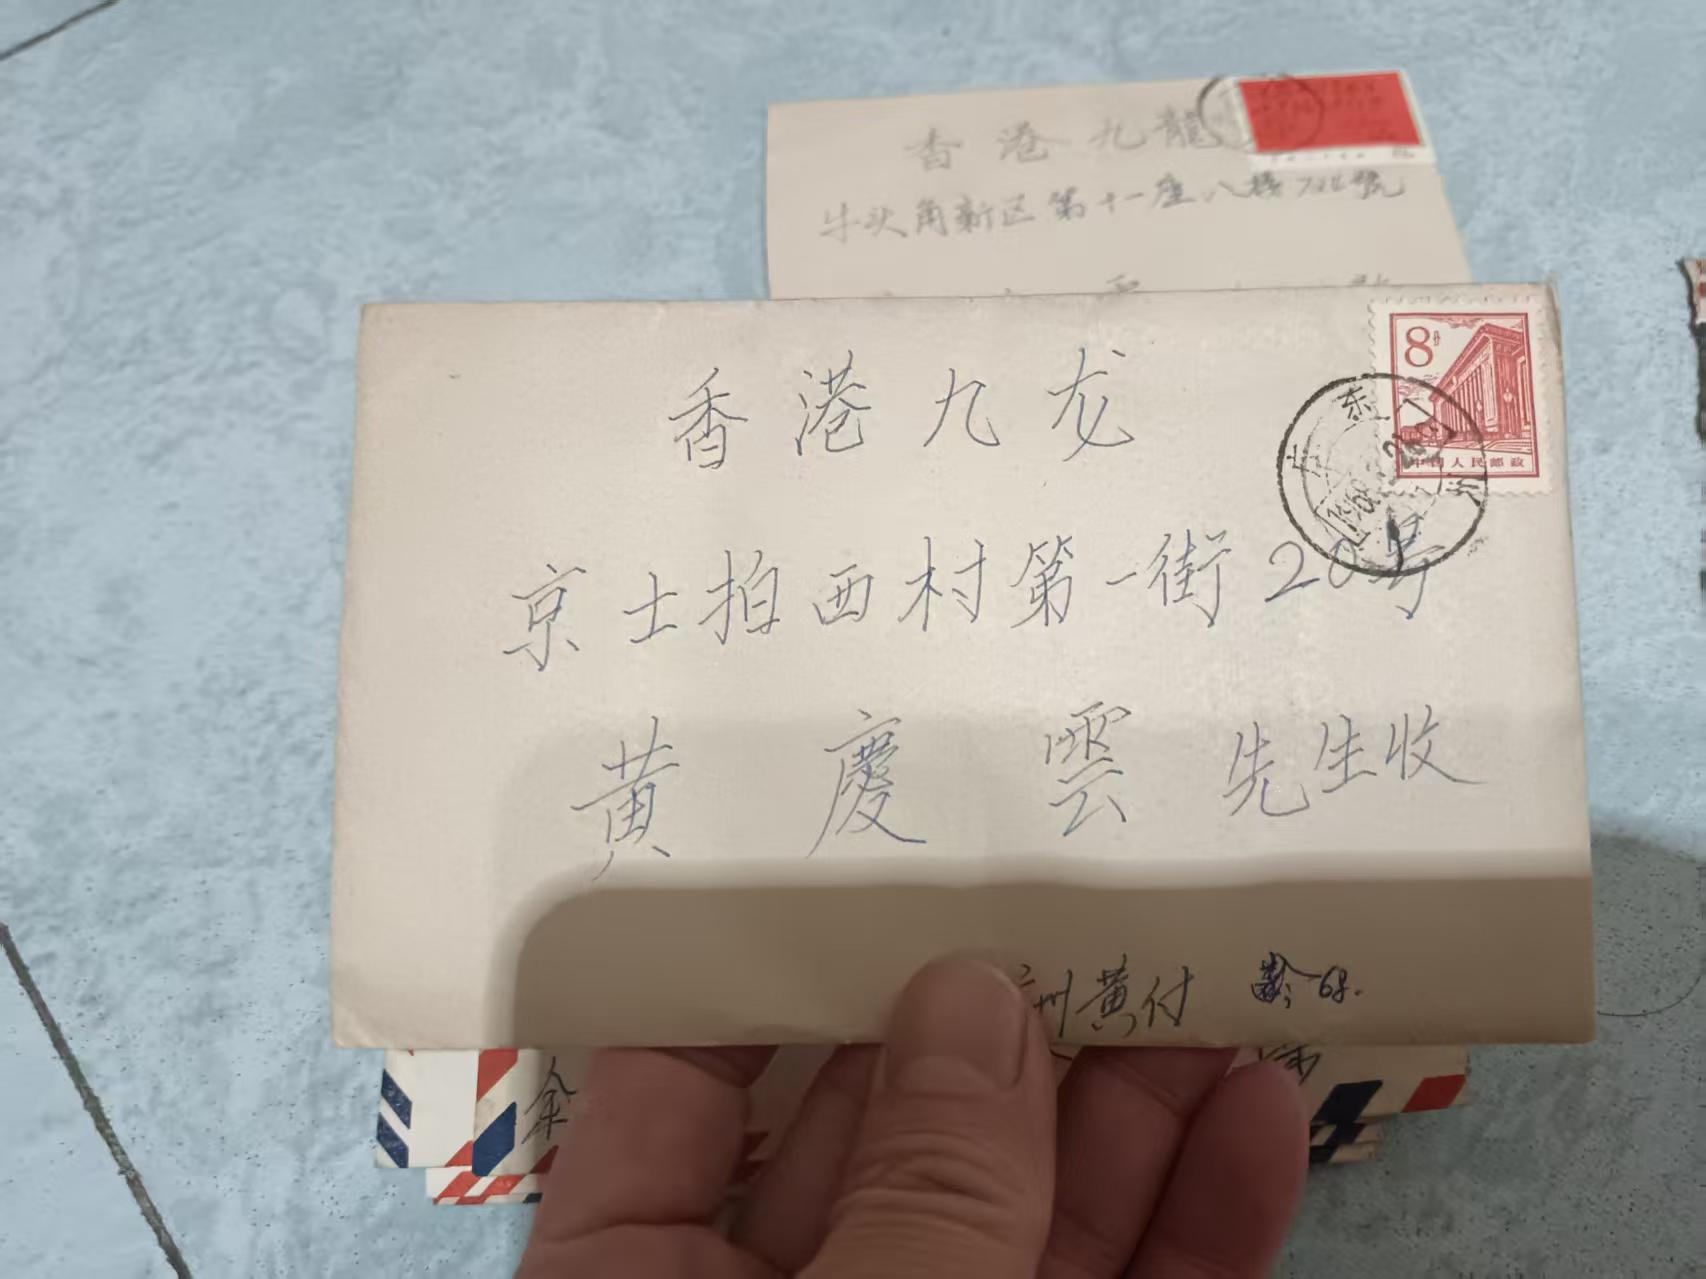 香港九龍
牛头角新区第十一座八楼
香港九龙
8分
中国人民邮政
广东
1968
京士拍西村第一街20号
黄慶雲先生收
广州黄付
龄68.